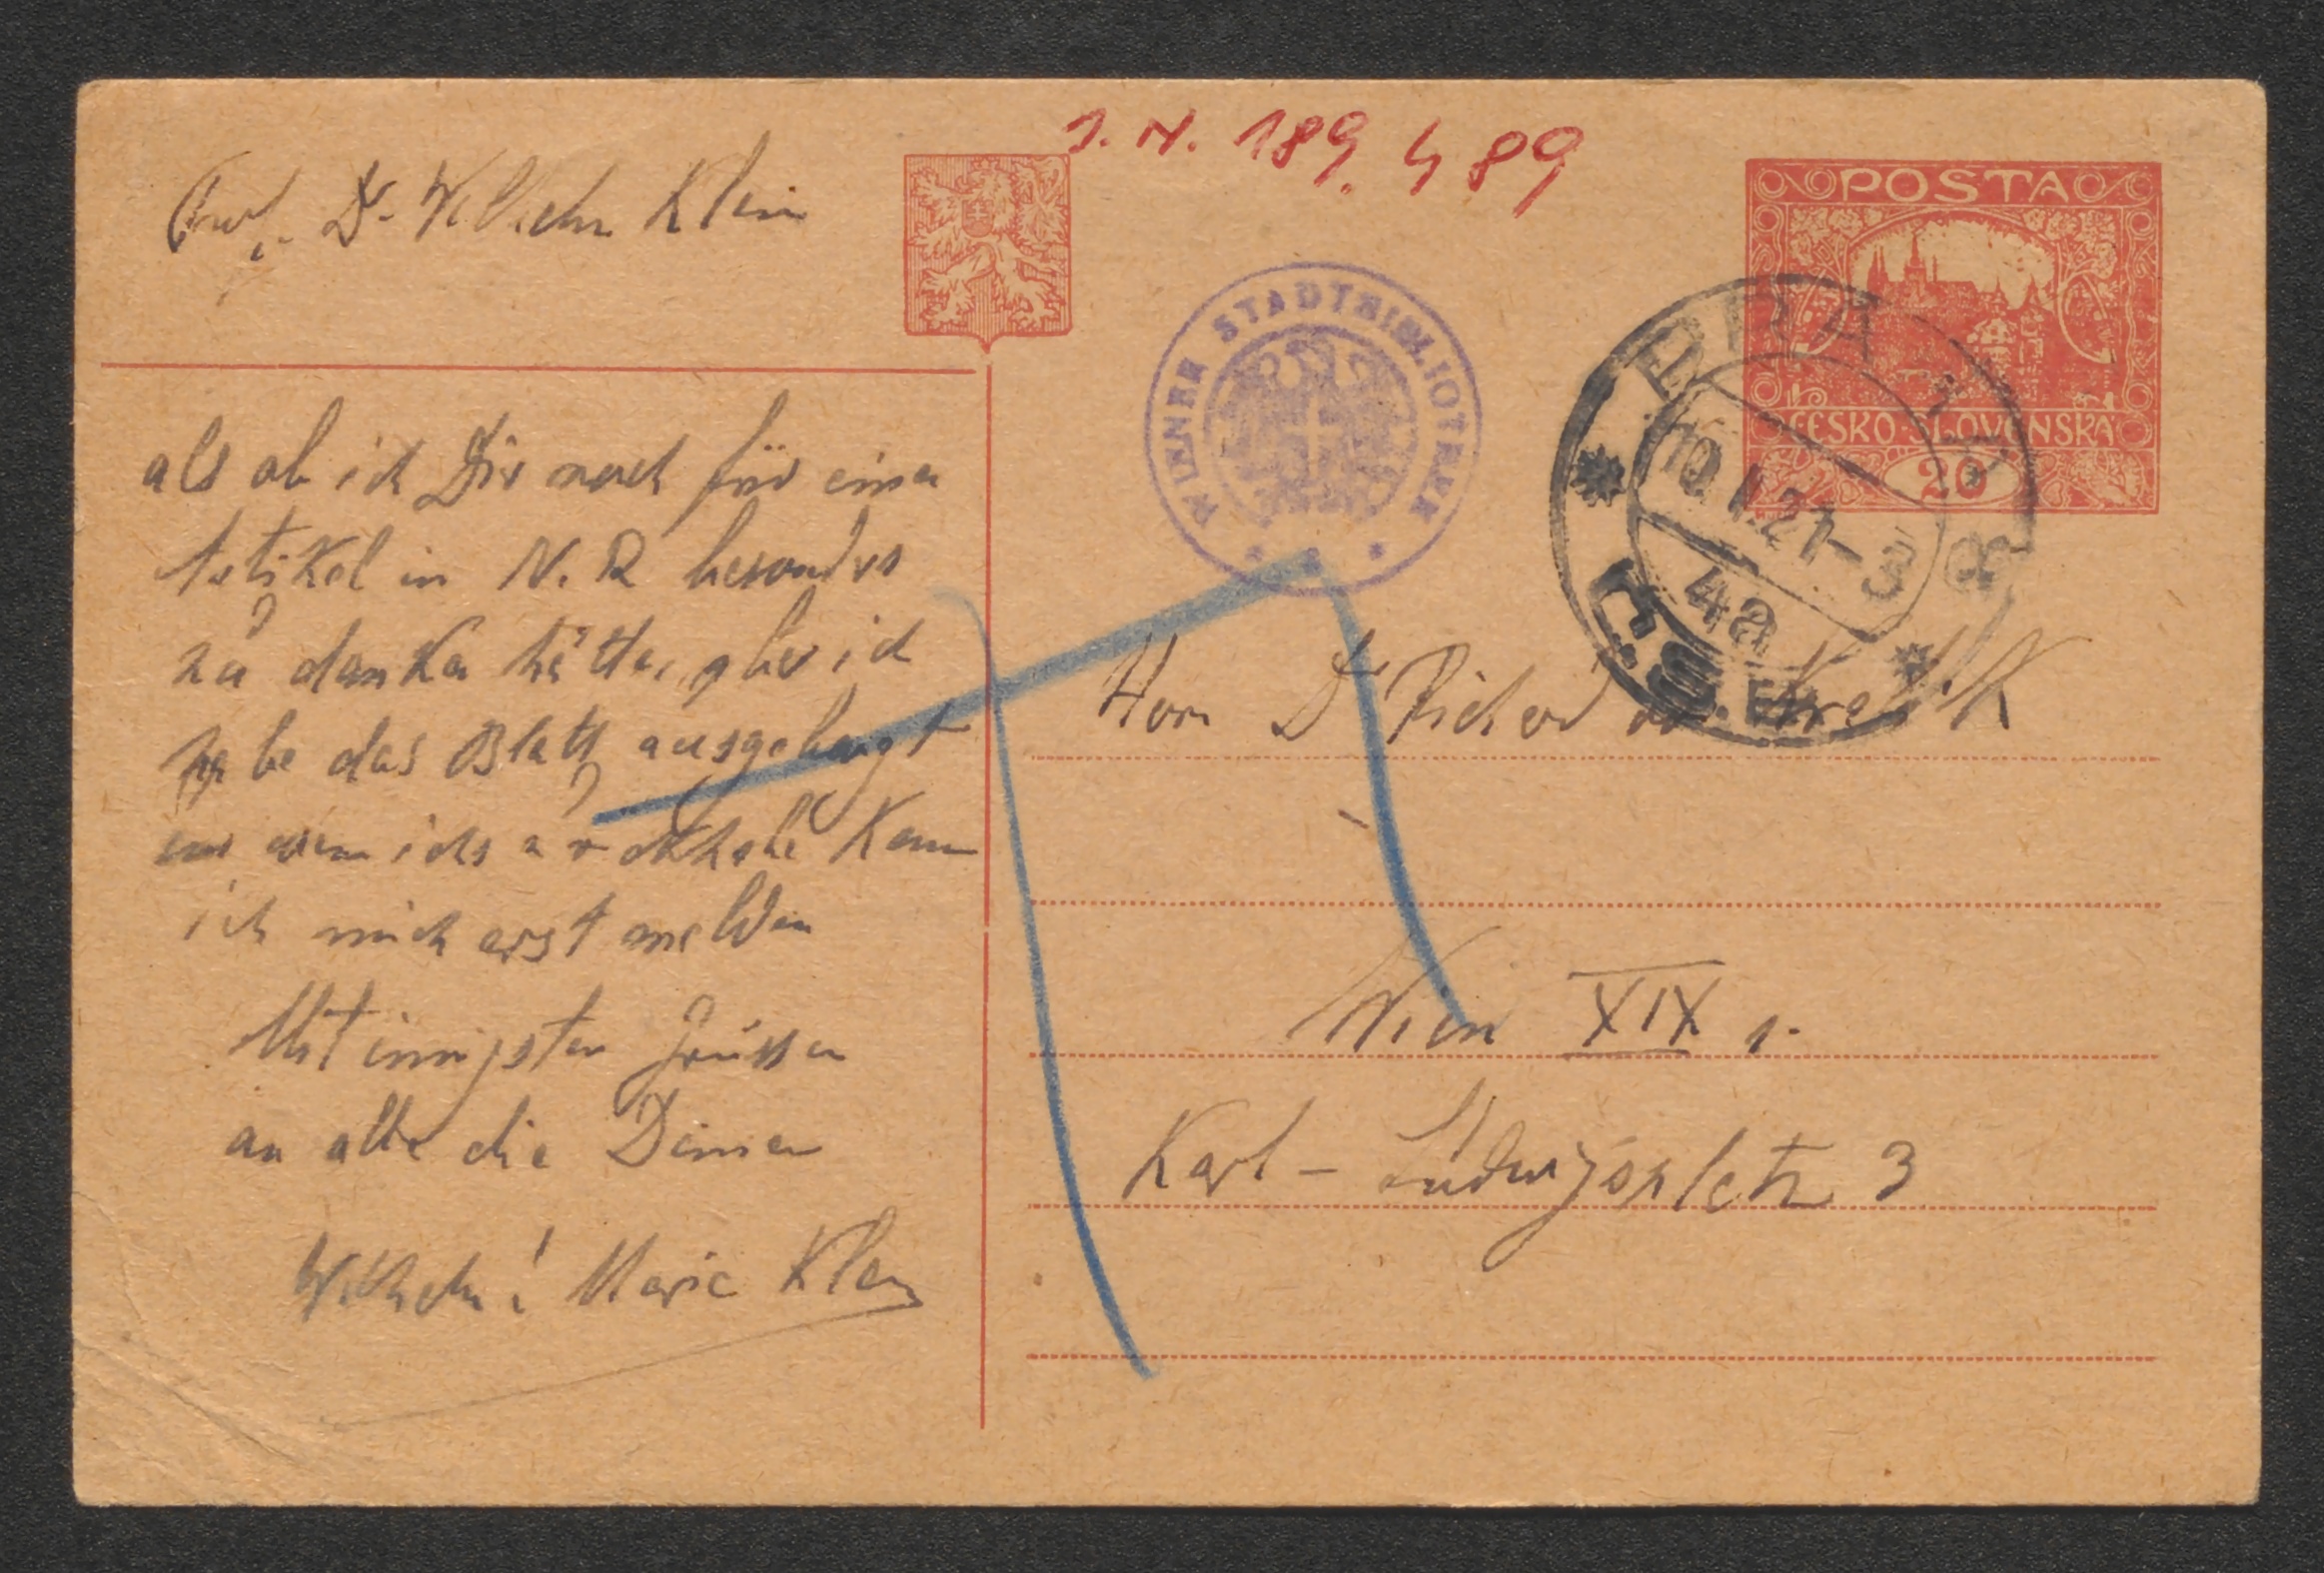 J. N. 189.489
Prof. Dr. Wilhelm Klein
POSTA
ČESKO-SLOVENSKÁ
20
WIENER STADTBIBLIOTHEK
10.V.21-3
4a
Č.S.P.
als ob ich Dir noch für einen
Artikel in N. R besonders
zu danken hätte, aber ich
habe das Blatt ausgeborgt
ich kann
ich mich erst melden
Mit innigsten Grüssen
an alle die Deinen
Wilhelm! Marie Klein
Herrn Dr Richard von Kralik
Wien XIX 1.
Karl-Ludwigsplatz 3